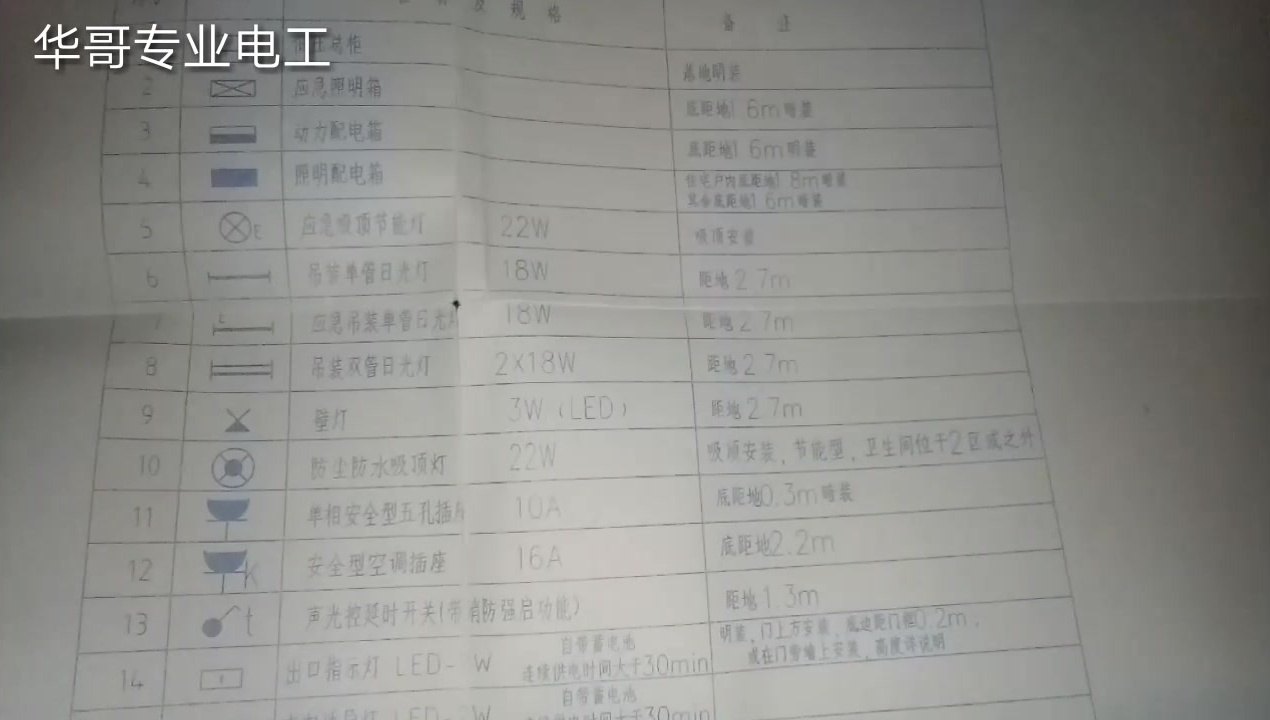 华哥专业电工
规格 备注
落地明装
2 应急照明箱 底距地1 6m暗装
3 动力配电箱 底距地1 6m明装
4 照明配电箱 住宅户内底距地1 8m暗装
其余底距地1 6m暗装
5 E 应急吸顶节能灯 22W 吸顶安装
6 吊装单管日光灯 18W 距地2 7m
7 E 应急吊装单管日光灯 18W 距地2 7m
8 吊装双管日光灯 2X18W 距地2 7m
9 壁灯 3W(LED) 距地2 7m
10 防尘防水吸顶灯 22W 吸顶安装,节能型,卫生间位于2区或之外
11 单相安全型五孔插座 10A 底距地0.3m暗装
12 K 安全型空调插座 16A 底距地2.2m
13 t 声光控延时开关(带消防强启功能) 距地1.3m
14 出口指示灯 LED- W 自带蓄电池 明装,门上方安装,底边距门框0.2m,
连续供电时间大于30min 或在门旁墙上安装,高度详说明
LED- W 自带蓄电池
连续供电时间大于30min